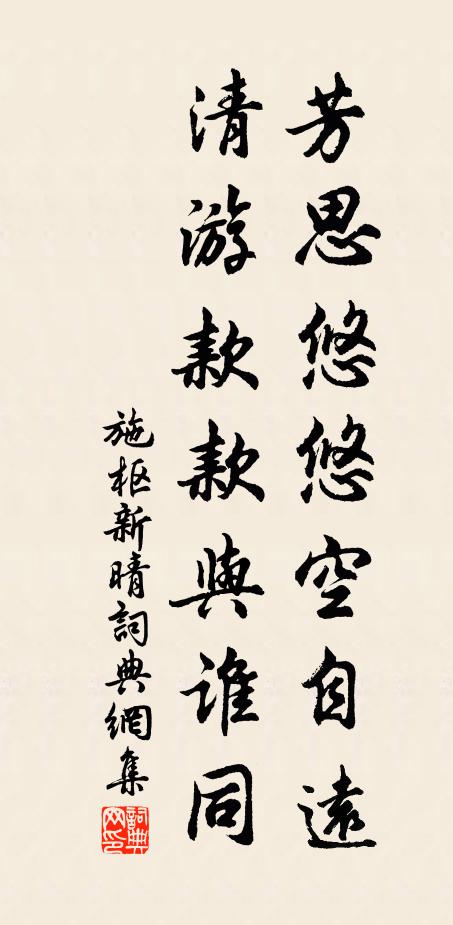 芳思悠悠空自遠
清游款款與誰同
施枢新晴詞典網集
詞典网印